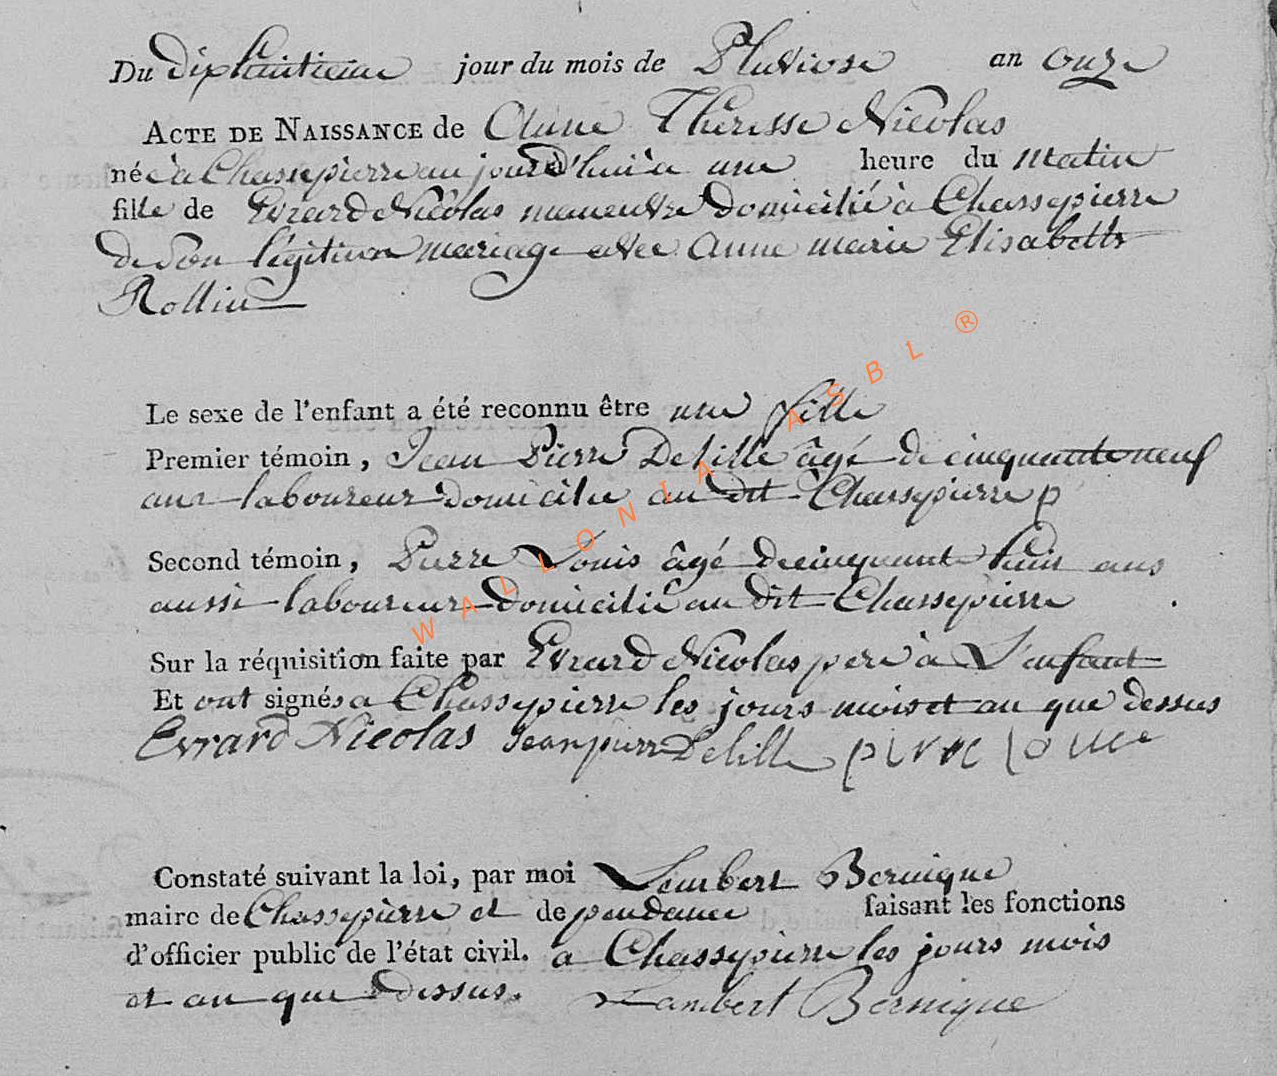 Du dixhuitieme jour du mois de Pluviose an onze
ACTE DE NAISSANCE de Anne Theresse Nicolas
née à Chassepierre au jourd'hui à une heure du matin
fille de Evrard Nicolas maneuvre domicilié à Chassepierre
de Son légitime mariage avec anne marie Elisabette
Rollin
Le sexe de l'enfant a été reconnu être une fille
Premier témoin, Jean Pierre Delille âgé de cinquante neuf
ans laboureur domicilie au dit Chassepierre
Second témoin, Pierre Louis âgé de cinquante huit ans
aussi laboureur domicilié au dit Chassepierre
Sur la réquisition faite par Evrard Nicolas pere à L'enfant
Et ont signés a Chassepierre les jours mois et an que dessus
Evrard Nicolas Jean pierre Delille
Constaté suivant la loi, par moi Lambert Bernique
maire de Chassepierre et dependance faisant les fonctions
d'officier public de l'état civil. a Chassepierre les jours mois
et an que dessus. Lambert Bernique
WALLONIA ASBL ®